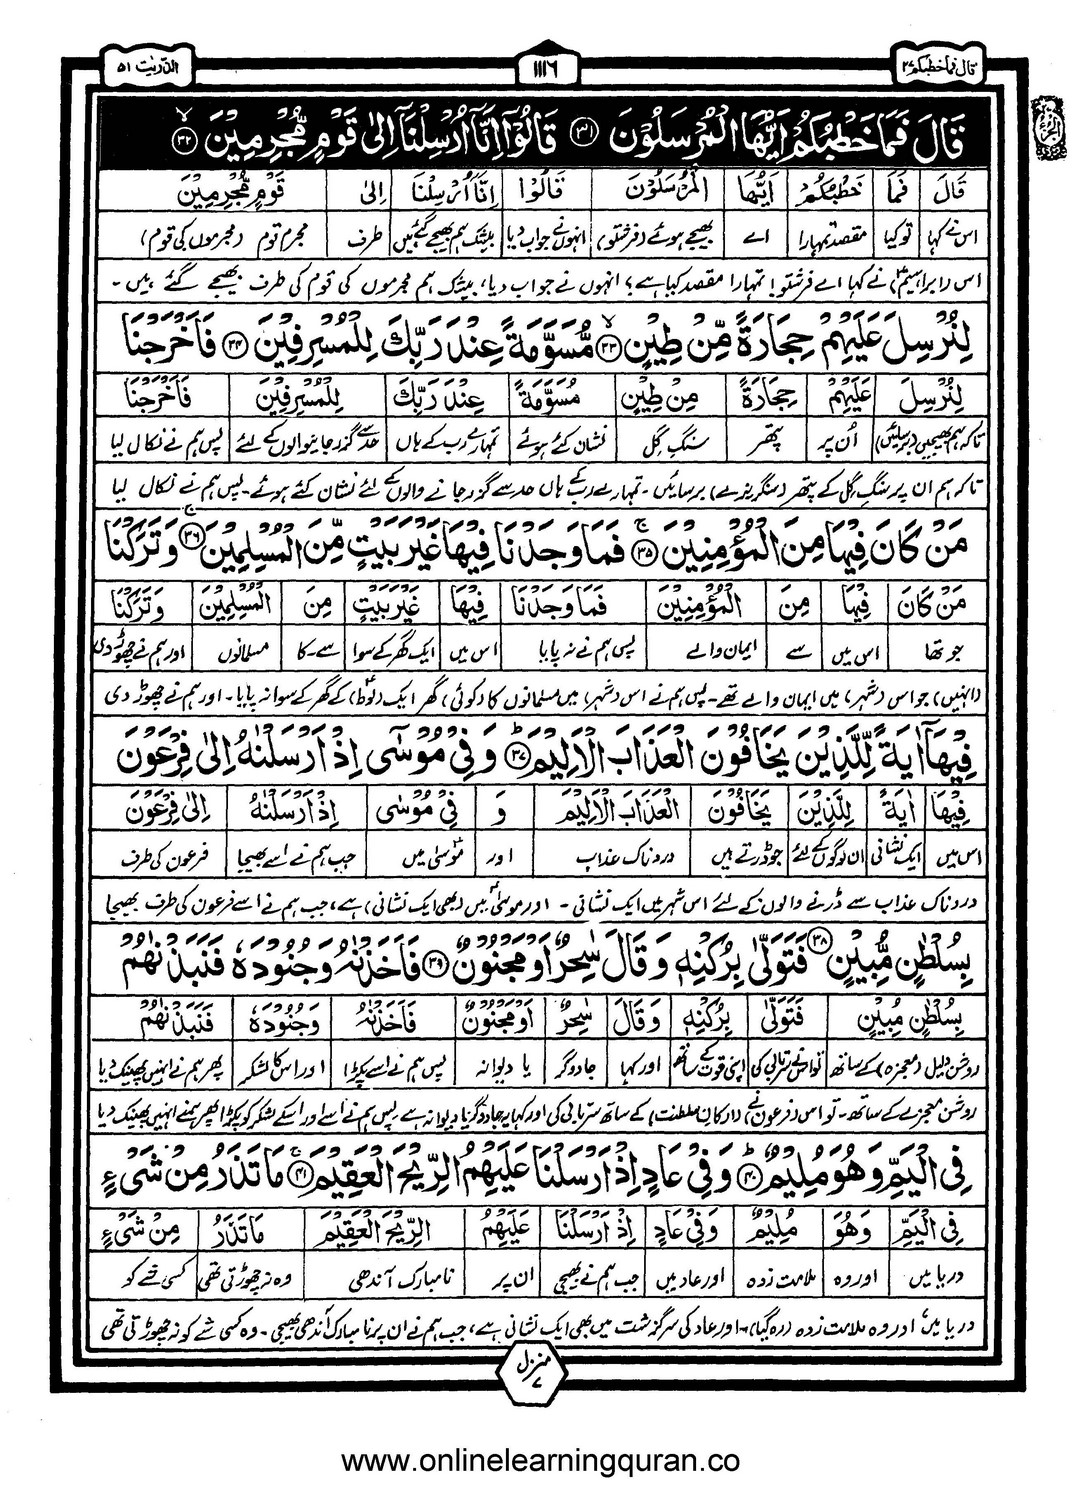 قال فما خطبکم ۲۷
۱۱۱۶
الذّٰریٰت ۵۱
قَالَ فَمَا خَطْبُكُمْ اَيُّهَا الْمُرْسَلُوْنَ ﴿۳۱﴾ قَالُوْٓا اِنَّآ اُرْسِلْنَآ اِلٰى قَوْمٍ مُّجْرِمِيْنَ ﴿۳۲﴾
قَالَ فَمَا خَطْبُكُمْ اَيُّهَا الْمُرْسَلُوْنَ قَالُوْٓا اِنَّآ اُرْسِلْنَآ اِلٰى قَوْمٍ مُّجْرِمِيْنَ
اس نے کہا تو کیا مقصد تمہارا اے بھیجے ہوئے (فرشتو) انہوں نے جواب دیا بیشک ہم بھیجے گئے ہیں طرف مجرم قوم (مجرموں کی قوم)
اس (ابراہیمؑ) نے کہا اے فرشتو! تمہارا مقصد کیا ہے؟ انہوں نے جواب دیا، بیشک ہم مجرموں کی قوم کی طرف بھیجے گئے ہیں۔
لِنُرْسِلَ عَلَيْهِمْ حِجَارَةً مِّنْ طِيْنٍ ﴿۳۳﴾ مُّسَوَّمَةً عِنْدَ رَبِّكَ لِلْمُسْرِفِيْنَ ﴿۳۴﴾ فَاَخْرَجْنَا
لِنُرْسِلَ عَلَيْهِمْ حِجَارَةً مِنْ طِيْنٍ مُسَوَّمَةً عِنْدَ رَبِّكَ لِلْمُسْرِفِيْنَ فَاَخْرَجْنَا
تاکہ ہم بھیجیں (برسائیں) اُن پر پتھر سنگِ گِل نشان کئے ہوئے تمہارے رب کے ہاں حد سے گزر جانیوالوں کے لئے پس ہم نے نکال لیا
تاکہ ہم ان پر سنگِ گل کے پتھر (سنگریزے) برسائیں۔ تمہارے رب کے ہاں حد سے گزر جانے والوں کے لئے نشان کئے ہوئے۔ پس ہم نے نکال لیا
مَنْ كَانَ فِيْهَا مِنَ الْمُؤْمِنِيْنَ ﴿۳۵﴾ فَمَا وَجَدْنَا فِيْهَا غَيْرَ بَيْتٍ مِّنَ الْمُسْلِمِيْنَ ﴿۳۶﴾ وَتَرَكْنَا
مَنْ كَانَ فِيْهَا مِنَ الْمُؤْمِنِيْنَ فَمَا وَجَدْنَا فِيْهَا غَيْرَ بَيْتٍ مِنَ الْمُسْلِمِيْنَ وَتَرَكْنَا
جو تھا اس میں سے ایمان والے پس ہم نے نہ پایا اس میں ایک گھر کے سوا سے۔کا مسلمانوں اور ہم نے چھوڑ دی
(انہیں) جو اس (شہر) میں ایمان والے تھے۔ پس ہم نے اس (شہر) میں مسلمانوں کا (کوئی) گھر ایک (لوطؑ) کے گھر کے سوا نہ پایا۔ اور ہم نے چھوڑ دی
فِيْهَآ اٰيَةً لِّلَّذِيْنَ يَخَافُوْنَ الْعَذَابَ الْاَلِيْمَ ﴿۳۷﴾ وَ فِيْ مُوْسٰٓى اِذْ اَرْسَلْنٰهُ اِلٰى فِرْعَوْنَ
فِيْهَا اٰيَةً لِلَّذِيْنَ يَخَافُوْنَ الْعَذَابَ الْاَلِيْمَ وَ فِيْ مُوْسٰى اِذْ اَرْسَلْنٰهُ اِلٰى فِرْعَوْنَ
اس میں ایک نشانی ان لوگوں کے لئے جو ڈرتے ہیں دردناک عذاب اور موسیٰؑ میں جب ہم نے اسے بھیجا فرعون کی طرف
دردناک عذاب سے ڈرنے والوں کے لئے اس شہر میں ایک نشانی۔ اور موسیٰؑ میں (بھی ایک نشانی) ہے، جب ہم نے اسے فرعون کی طرف بھیجا
بِسُلْطٰنٍ مُّبِيْنٍ ﴿۳۸﴾ فَتَوَلّٰى بِرُكْنِهٖ وَ قَالَ سٰحِرٌ اَوْ مَجْنُوْنٌ ﴿۳۹﴾ فَاَخَذْنٰهُ وَ جُنُوْدَهٗ فَنَبَذْنٰهُمْ
بِسُلْطٰنٍ مُبِيْنٍ فَتَوَلّٰى بِرُكْنِهٖ وَ قَالَ سٰحِرٌ اَوْ مَجْنُوْنٌ فَاَخَذْنٰهُ وَ جُنُوْدَهٗ فَنَبَذْنٰهُمْ
روشن دلیل (معجزہ) کے ساتھ تو اس نے سرتابی کی اپنی قوت کے ساتھ اور کہا جادوگر یا دیوانہ پس ہم نے اسے پکڑا اور اس کا لشکر پھر ہم نے انہیں پھینک دیا
روشن معجزے کے ساتھ۔ تو اس (فرعون) نے (ارکانِ سلطنت) کے ساتھ سرتابی کی اور کہا یہ جادوگر یا دیوانہ ہے پس ہم نے اسے اور اسکے لشکر کو پکڑا پھر ہمنے انہیں پھینک دیا
فِي الْيَمِّ وَ هُوَ مُلِيْمٌ ﴿۴۰﴾ وَ فِيْ عَادٍ اِذْ اَرْسَلْنَا عَلَيْهِمُ الرِّيْحَ الْعَقِيْمَ ﴿۴۱﴾ مَا تَذَرُ مِنْ شَيْءٍ
فِي الْيَمِّ وَهُوَ مُلِيْمٌ وَفِيْ عَادٍ اِذْ اَرْسَلْنَا عَلَيْهِمُ الرِّيْحَ الْعَقِيْمَ مَا تَذَرُ مِنْ شَيْءٍ
دریا میں اور وہ ملامت زدہ اور عاد میں جب ہم نے بھیجی ان پر نامبارک آندھی وہ نہ چھوڑتی تھی کسی شے کو
دریا میں اور وہ ملامت زدہ (رہ گیا)۔ اور عاد کی سرگزشت میں بھی ایک نشانی ہے، جب ہم نے ان پر نا مبارک آندھی بھیجی۔ وہ کسی شے کو نہ چھوڑتی تھی
منزل ۷
www.onlinelearningquran.co